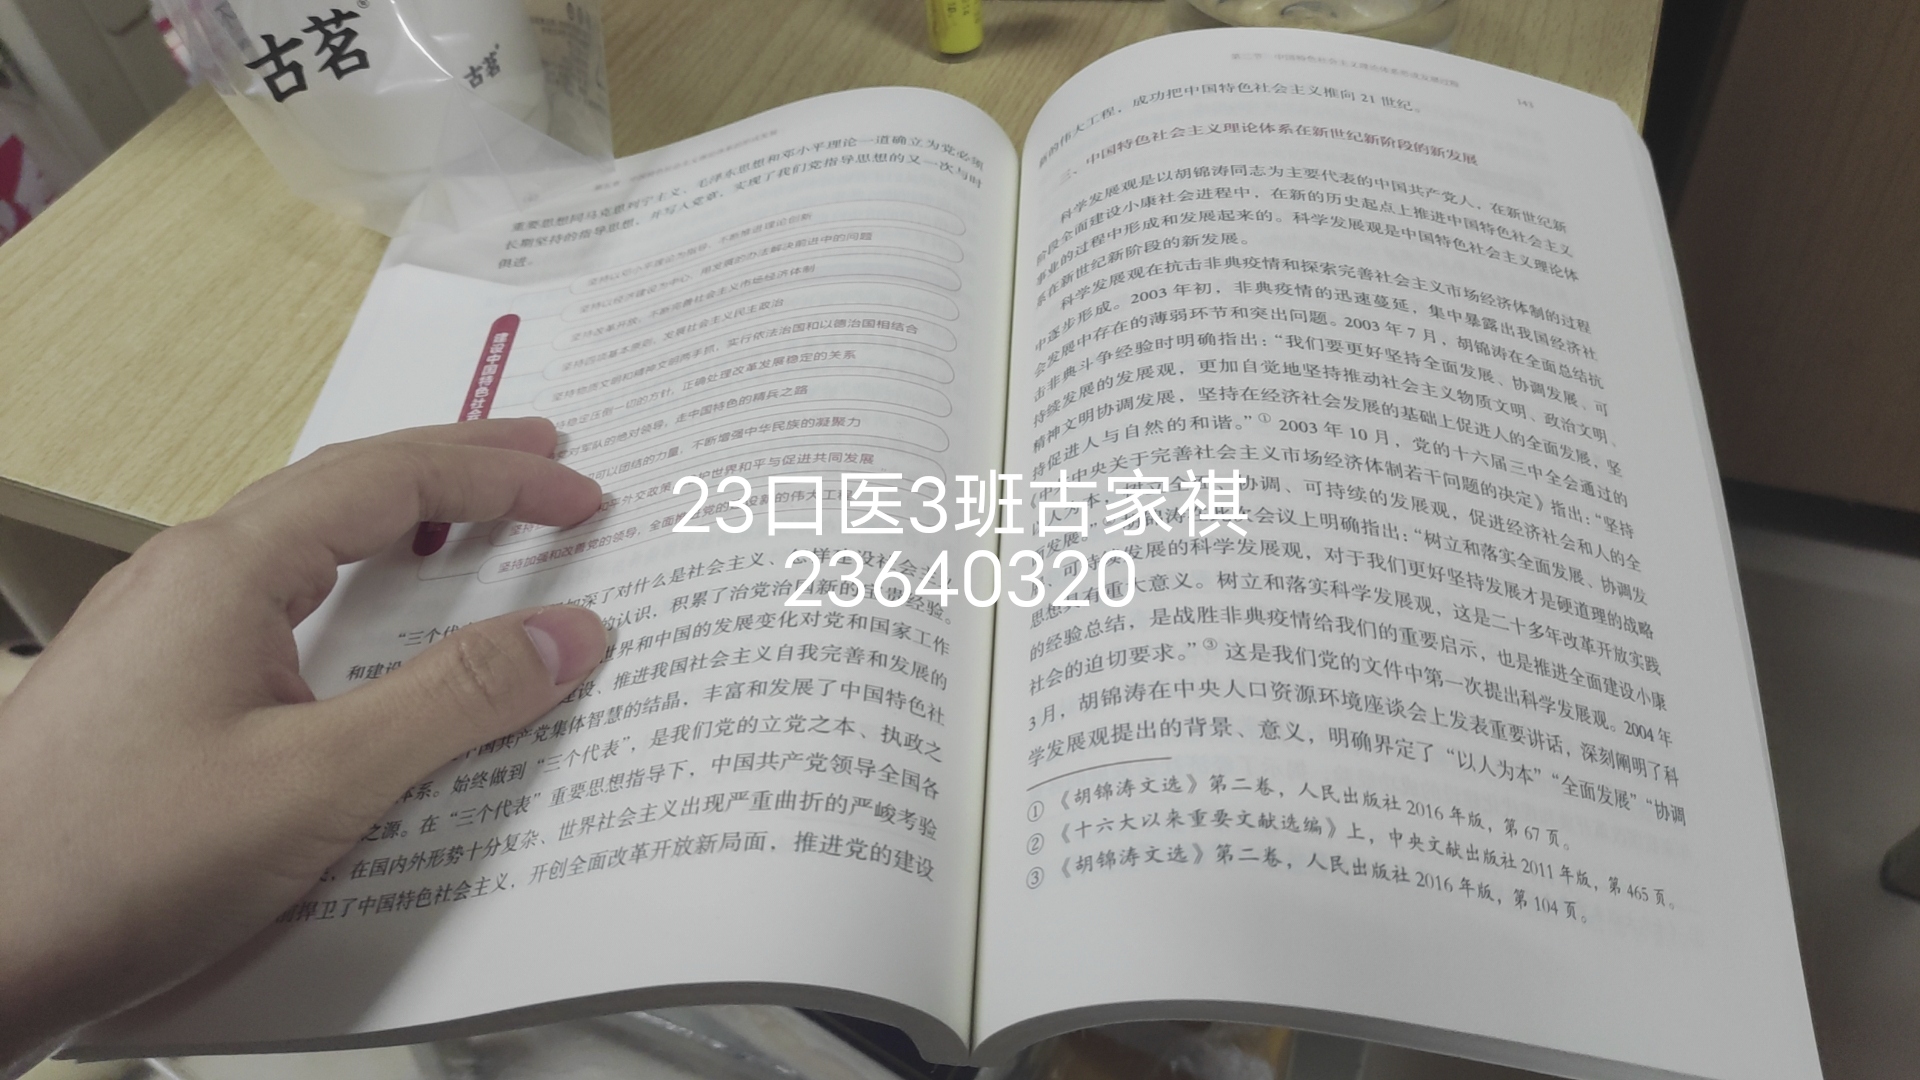 古茗
古茗
重要思想同马克思列宁主义、毛泽东思想和邓小平理论一道确立为党必须
长期坚持的指导思想，并写入党章，实现了我们党指导思想的又一次与时
俱进。
坚持以邓小平理论为指导，不断推进理论创新
坚持以经济建设为中心，用发展的办法解决前进中的问题
坚持改革开放，不断完善社会主义市场经济体制
坚持四项基本原则，发展社会主义民主政治
坚持物质文明和精神文明两手抓，实行依法治国和以德治国相结合
持稳定压倒一切的方针，正确处理改革发展稳定的关系
党对军队的绝对领导，走中国特色的精兵之路
可以团结的力量，不断增强中华民族的凝聚力
外交政策 护世界和平与促进共同发展
坚持加强和改善党的领导，全面推进党的建设新的伟大工程
建设中国特色社会
“三个代 加深了对什么是社会主义、怎样建设社会主义
和建设 的认识，积累了治党治国新的宝贵经验。
世界和中国的发展变化对党和国家工作
建设、推进我国社会主义自我完善和发展的
中国共产党集体智慧的结晶，丰富和发展了中国特色社
体系。始终做到“三个代表”，是我们党的立党之本、执政之
之源。在“三个代表”重要思想指导下，中国共产党领导全国各
，在国内外形势十分复杂、世界社会主义出现严重曲折的严峻考验
捍卫了中国特色社会主义，开创全面改革开放新局面，推进党的建设
143
新的伟大工程，成功把中国特色社会主义推向 21 世纪。
三、中国特色社会主义理论体系在新世纪新阶段的新发展
科学发展观是以胡锦涛同志为主要代表的中国共产党人，在新世纪新
阶段全面建设小康社会进程中，在新的历史起点上推进中国特色社会主义
事业的过程中形成和发展起来的。科学发展观是中国特色社会主义理论体
系在新世纪新阶段的新发展。
科学发展观在抗击非典疫情和探索完善社会主义市场经济体制的过程
中逐步形成。2003 年初，非典疫情的迅速蔓延，集中暴露出我国经济社
会发展中存在的薄弱环节和突出问题。2003 年 7 月，胡锦涛在全面总结抗
击非典斗争经验时明确指出：“我们要更好坚持全面发展、协调发展、可
持续发展的发展观，更加自觉地坚持推动社会主义物质文明、政治文明、
精神文明协调发展，坚持在经济社会发展的基础上促进人的全面发展，坚
持促进人与自然的和谐。”① 2003 年 10 月，党的十六届三中全会通过的
《中共中央关于完善社会主义市场经济体制若干问题的决定》指出：“坚持
以人为本，树立全面、协调、可持续的发展观，促进经济社会和人的全
面发展。”②胡锦涛在此次会议上明确指出：“树立和落实全面发展、协调发
展、可持续发展的科学发展观，对于我们更好坚持发展才是硬道理的战略
思想具有重大意义。树立和落实科学发展观，这是二十多年改革开放实践
的经验总结，是战胜非典疫情给我们的重要启示，也是推进全面建设小康
社会的迫切要求。”③ 这是我们党的文件中第一次提出科学发展观。2004 年
3 月，胡锦涛在中央人口资源环境座谈会上发表重要讲话，深刻阐明了科
学发展观提出的背景、意义，明确界定了“以人为本”“全面发展”“协调
① 《胡锦涛文选》第二卷，人民出版社 2016 年版，第 67 页。
② 《十六大以来重要文献选编》上，中央文献出版社 2011 年版，第 465 页。
③ 《胡锦涛文选》第二卷，人民出版社 2016 年版，第 104 页。
23口医3班古家祺
23640320